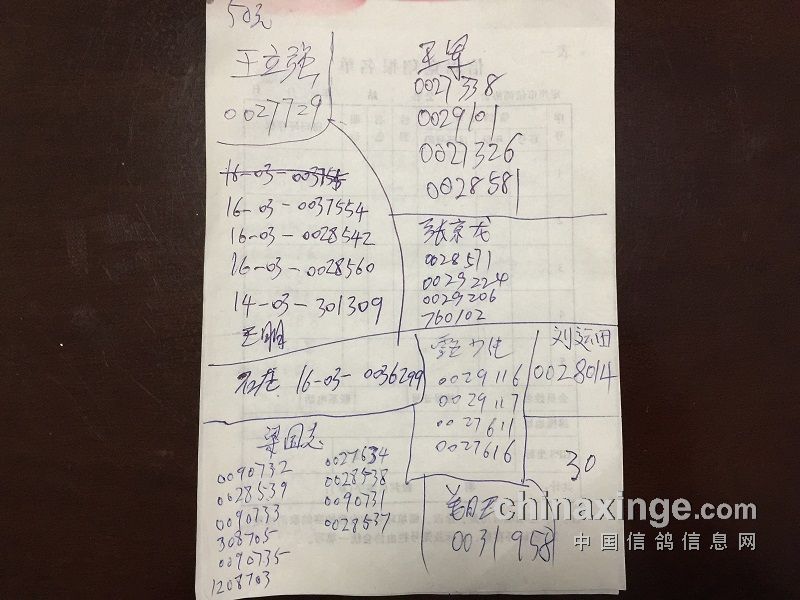 50元
王立强
0027729
王军
0027338
0029101
0027326
0028581
16-03-0037554
16-03-0028542
16-03-0028560
14-03-301309
王明
张京龙
0028571
0029224
0029206
760102
石虎 16-03-0036299
0029116
0029117
0027611
0027616
刘运田
0028014
30
梁国志
0090732
0028539
0090733
308705
0090735
1208703
0027634
0028538
0090731
0028537
0031958
chinaxinge.com
中国信鸽信息网